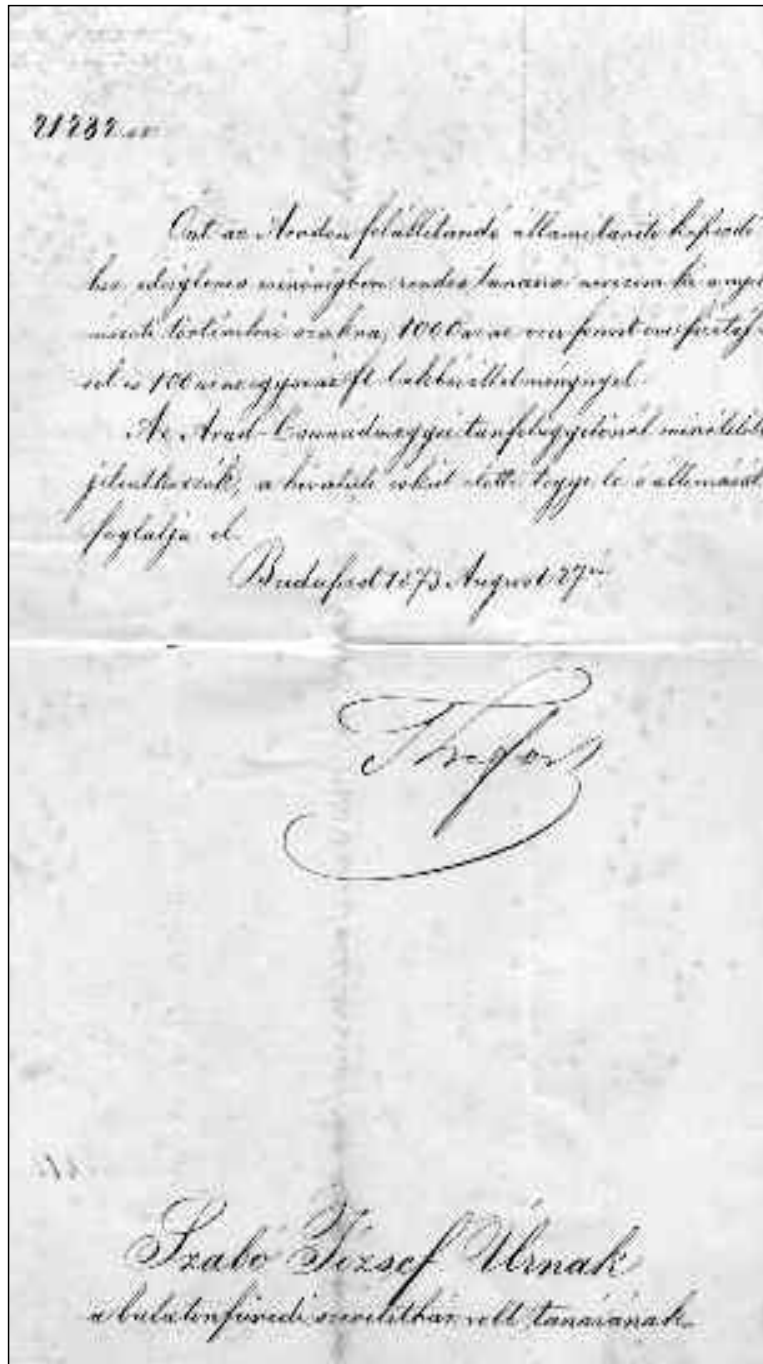 21232
Önt az Aradon felállitandó állami tanitó képezdé
hez ideiglenes minőségben rendes tanárrá nevezem ki a nyelv
történelmi szakra, 1000 azaz ezer forint évi fizetés
sel és 100 azaz egyszáz ft lakbérilletménynyel.
Az Arad-Csanádmegyei tanfelügyelőnél
jelentkezzék, a hivatali esküt előtte tegye le s állomását
foglalja el.
Budapest 1873 August 27én
Trefort
Szabó József Úrnak
a balatonfüredi szeretetház volt tanárának.